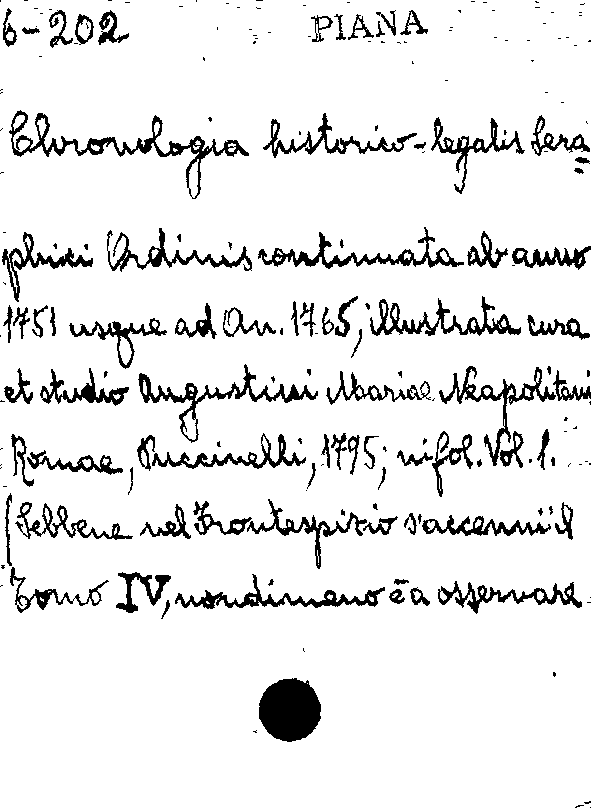 6-202 PIANA
Chronologia historico-legalis Sera=
phici Ordinis continuata ab anno
1751 usque ad An. 1765, illustrata cura
et studio Augustini Mariae Neapolitani
Romae, Puccinelli, 1795; in fol. Vol. 1.
(Sebbene nel Frontespizio s'accenni il
Tomo IV, nondimeno è a osservare